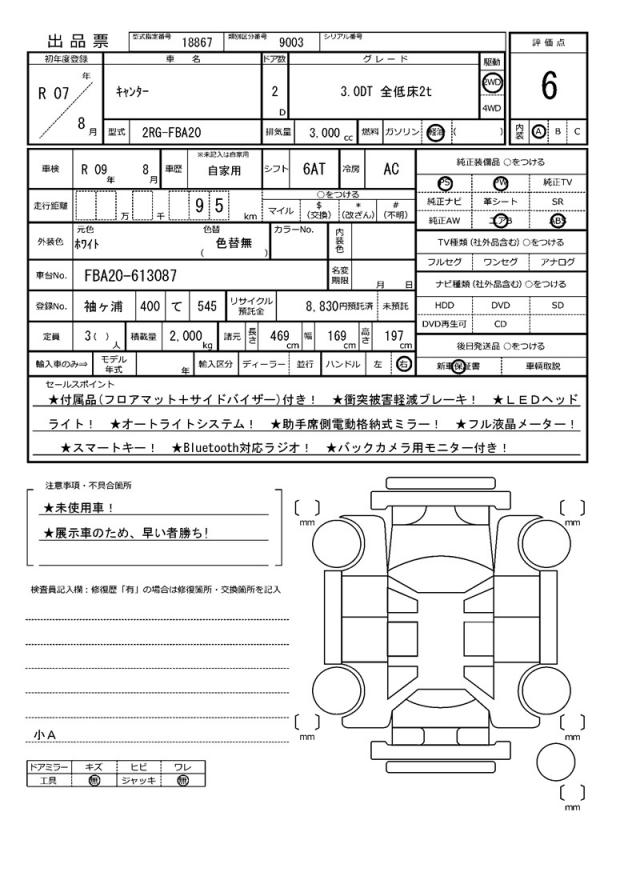 出品票 型式指定番号 18867 類別区分番号 9003 シリアル番号
評価点
6
内装 A B C
初年度登録 車名 ドア数 グレード 駆動
R 07 年 8 月 キャンター 2 D 3.0DT 全低床2t 2WD 4WD
型式 2RG-FBA20 排気量 3.000 cc 燃料 ガソリン 軽油 ( )
車検 R 09 年 8 月 車歴 ※未記入は自家用 自家用 シフト 6AT 冷房 AC
走行距離 万 千 9 5 km ○をつける
マイル $ (交換) * (改ざん) # (不明)
外装色 元色 ホワイト 色替 色替無 ( ) カラーNo. 内装色
車台No. FBA20-613087 名変期限 月 日
登録No. 袖ヶ浦 400 て 545 リサイクル預託金 8,830円預託済 未預託
定員 3( ) 人 積載量 2,000 kg 諸元 長さ 469 cm 幅 169 cm 高さ 197 cm
輸入車のみ⇒ モデル年式 年 輸入区分 ディーラー 並行 ハンドル 左 右
純正装備品 ○をつける
PS PW 純正TV
純正ナビ 革シート SR
純正AW エアB ABS
TV種類 (社外品含む) ○をつける
フルセグ ワンセグ アナログ
ナビ種類 (社外品含む) ○をつける
HDD DVD SD
DVD再生可 CD
後日発送品 ○をつける
新車保証書 車輌取説
セールスポイント
★付属品(フロアマット+サイドバイザー)付き! ★衝突被害軽減ブレーキ! ★LEDヘッド
ライト! ★オートライトシステム! ★助手席側電動格納式ミラー! ★フル液晶メーター!
★スマートキー! ★Bluetooth対応ラジオ! ★バックカメラ用モニター付き!
注意事項・不具合箇所
★未使用車!
★展示車のため、早い者勝ち!
検査員記入欄:修復歴「有」の場合は修復箇所・交換箇所を記入
小A
ドアミラー キズ ヒビ ワレ
工具 無 ジャッキ 無
[ ] mm
[ ] mm
[ ] mm
[ ] mm
[ ] mm